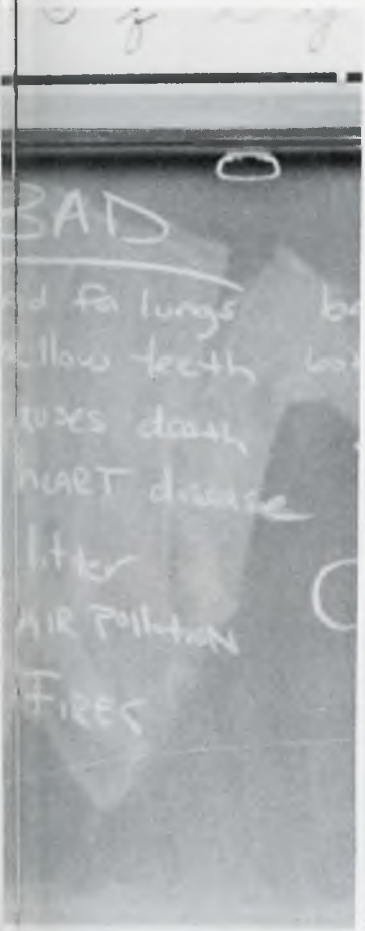 BAD
for lungs
yellow teeth
causes death
HEART disease
litter
AIR Pollution
FIRES